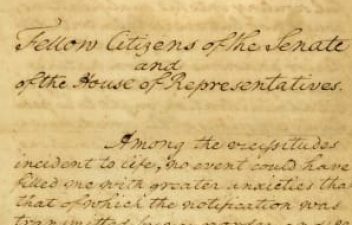 Fellow Citizens of the Senate
and
of the House of Representatives.
Among the vicissitudes
incident to life, no event could have
filled me with greater anxieties than
that of which the notification was
transmitted by your order, and